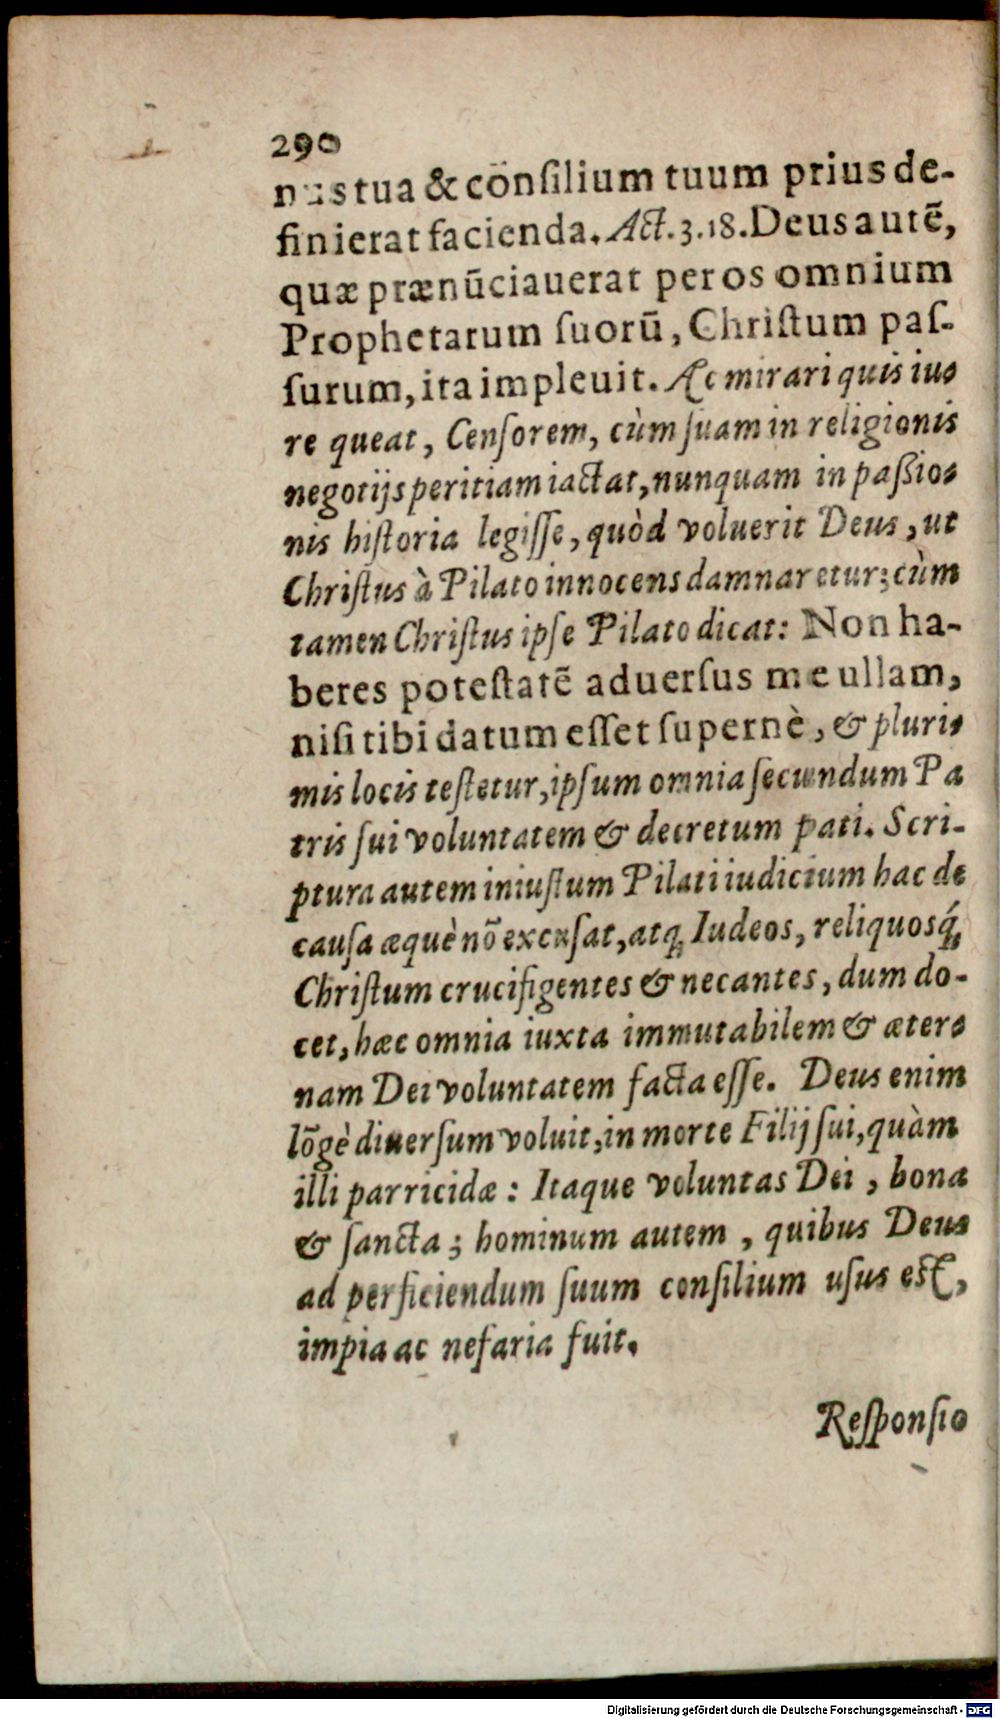 290
nus tua & cõnsilium tuum prius de-
finierat facienda. Act. 3.18. Deus autẽ,
quæ prænũciauerat per os omnium
Prophetarum suorũ, Christum pas-
surum, ita impleuit. Ac mirari quis iu-
re queat, Censorem, cùm suam in religionis
negotijs peritiam iactat, nunquam in paßio-
nis historia legisse, quòd voluerit Deus, ut
Christus à Pilato innocens damnaretur; cùm
tamen Christus ipse Pilato dicat: Non ha-
beres potestatẽ aduersus me ullam,
nisi tibi datum esset supernè, & pluri-
mis locis testetur, ipsum omnia secundum Pa
tris sui voluntatem & decretum pati. Scri-
ptura autem iniustum Pilati iudicium hac de
causa æquè nõ excusat, atq; Iudeos, reliquosq́;
Christum crucifigentes & necantes, dum do-
cet, hæc omnia iuxta immutabilem & æter-
nam Dei voluntatem facta esse. Deus enim
lõgè diuersum voluit, in morte Filij sui, quàm
illi parricidæ: Itaque voluntas Dei, bona
& sancta; hominum autem, quibus Deus
ad perficiendum suum consilium usus est,
impia ac nefaria fuit.
Responsio
Digitalisierung gefördert durch die Deutsche Forschungsgemeinschaft - DFG